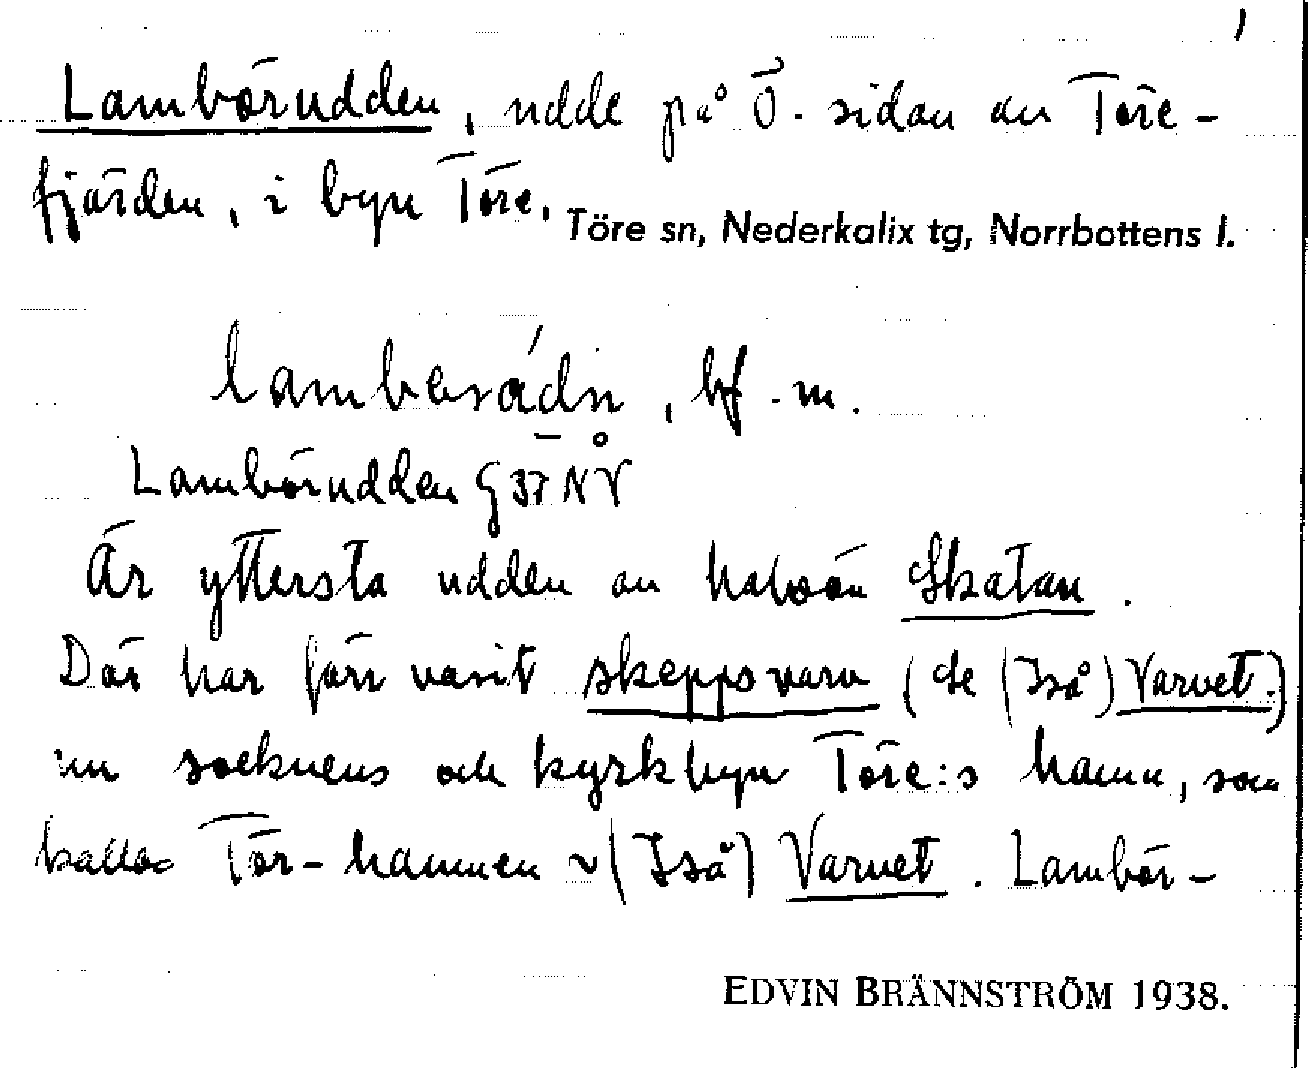 1
Lambörudden, udde på Ö. sidan av Töre-
fjärden, i byn Töre.
Töre sn, Nederkalix tg, Norrbottens l.
lambärádn, bf. m.
Lambörudden G 37 NV
Är yttersta udden av halvön Skatan.
Där har förr varit skeppsvarv (de (Iså) Varvet.)
nu socknens och kyrkbyn Töre:s hamn, som
kallas Tör-hamnen ~ (Iså) Varvet. Lambör-
EDVIN BRÄNNSTRÖM 1938.